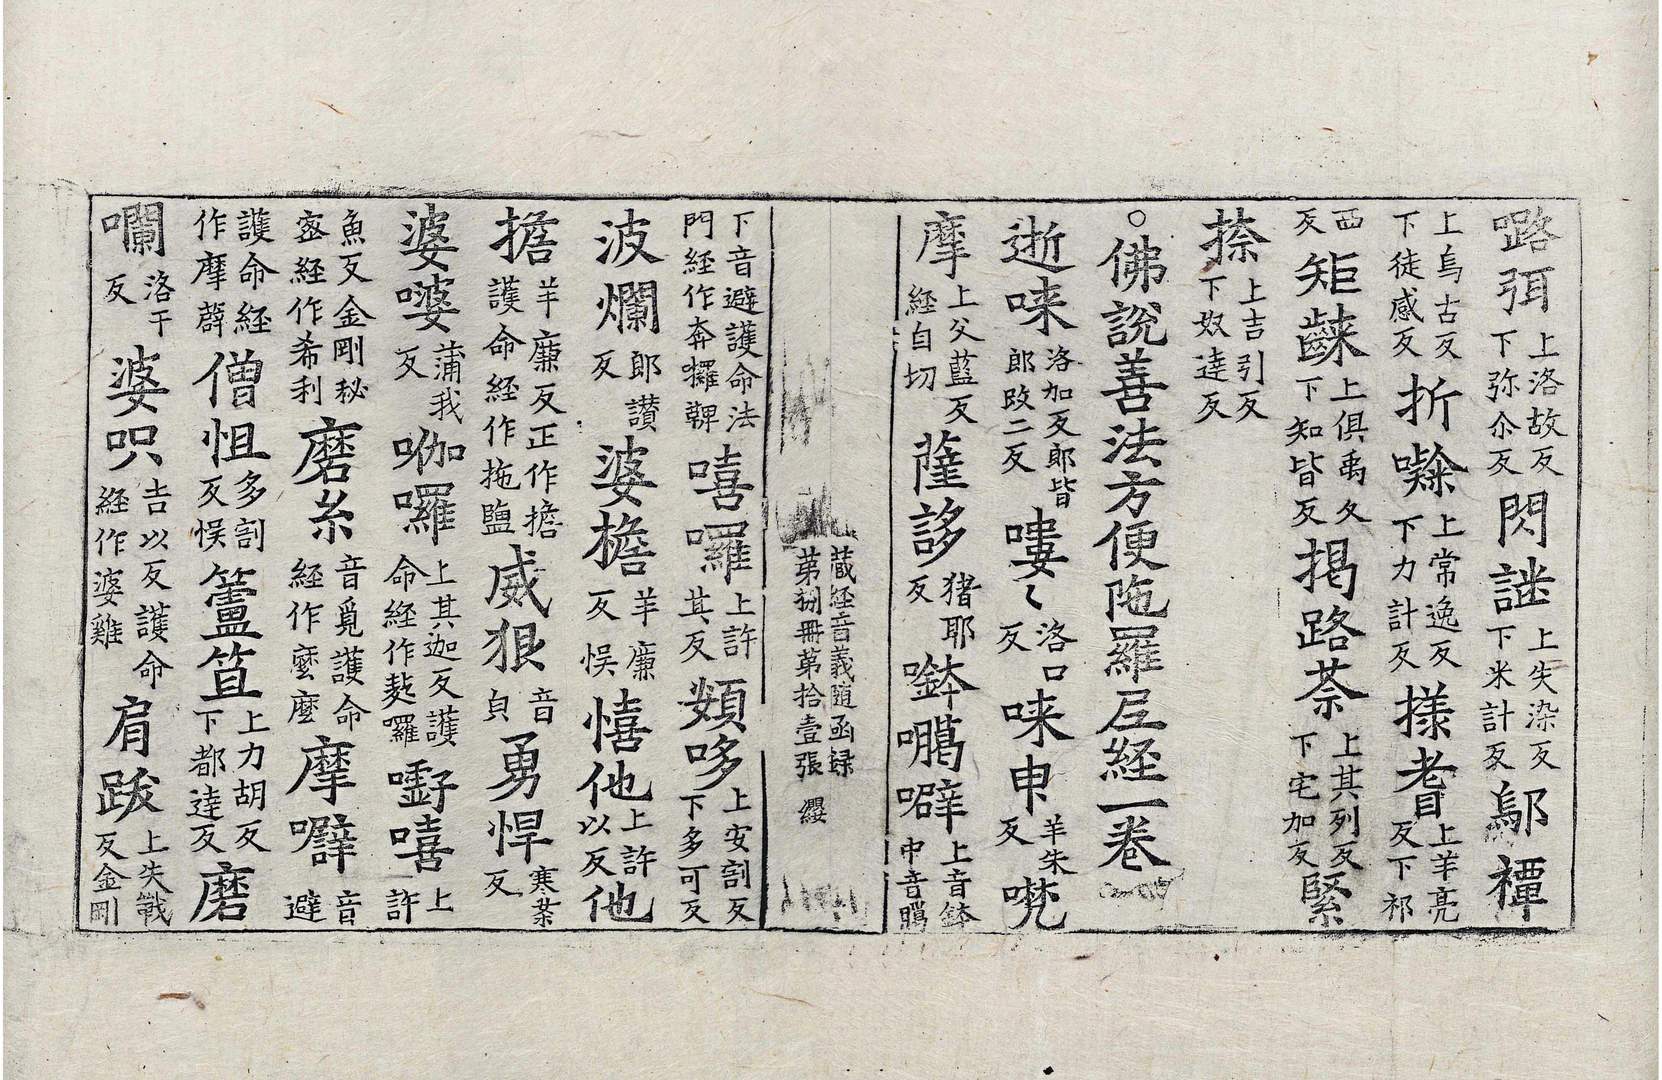 㗉弭上洛故反下弥尒反閃謎上失染反下米計反鄔禫
上烏古反下徒感反折㘑上常逸反下力計反搽耆上羊亮反下祁
西反矩𪘨上俱禹反下知皆反揭路荼上其列反下宅加反緊
捺上吉引反下奴達反
○佛說善法方便陁羅尼經一卷
逝唻洛加反郎皆郎改二反嘍〻洛口反唻申羊朱反㘕
摩上父藍反經自切薩誃猪耶反𠾴䁥噼上音鉢中音鶥
藏經音義隨函録第捌冊第拾壹張 纓
下音避護命法門經作奔攞鞞嘻囉上許其反頞哆上安割反下多可反
波爛郎讃反婆檐羊廉反悮憘他上許以反他
擔羊廉反正作擔護命經作拖鹽威狠音貞勇悍寒案反
婆㗶蒲我反㖿囉上其迦反護命經作䔾囉㘁嘻上許
魚反金剛秘密經作希利磨糸音覓護命經作麼麼摩噼音避
護命經作摩薜僧怚多割反悮簠笡上力胡反下都達反磨
囒洛干反婆呮吉以反護命經作婆雞肩跋上失戰反金剛